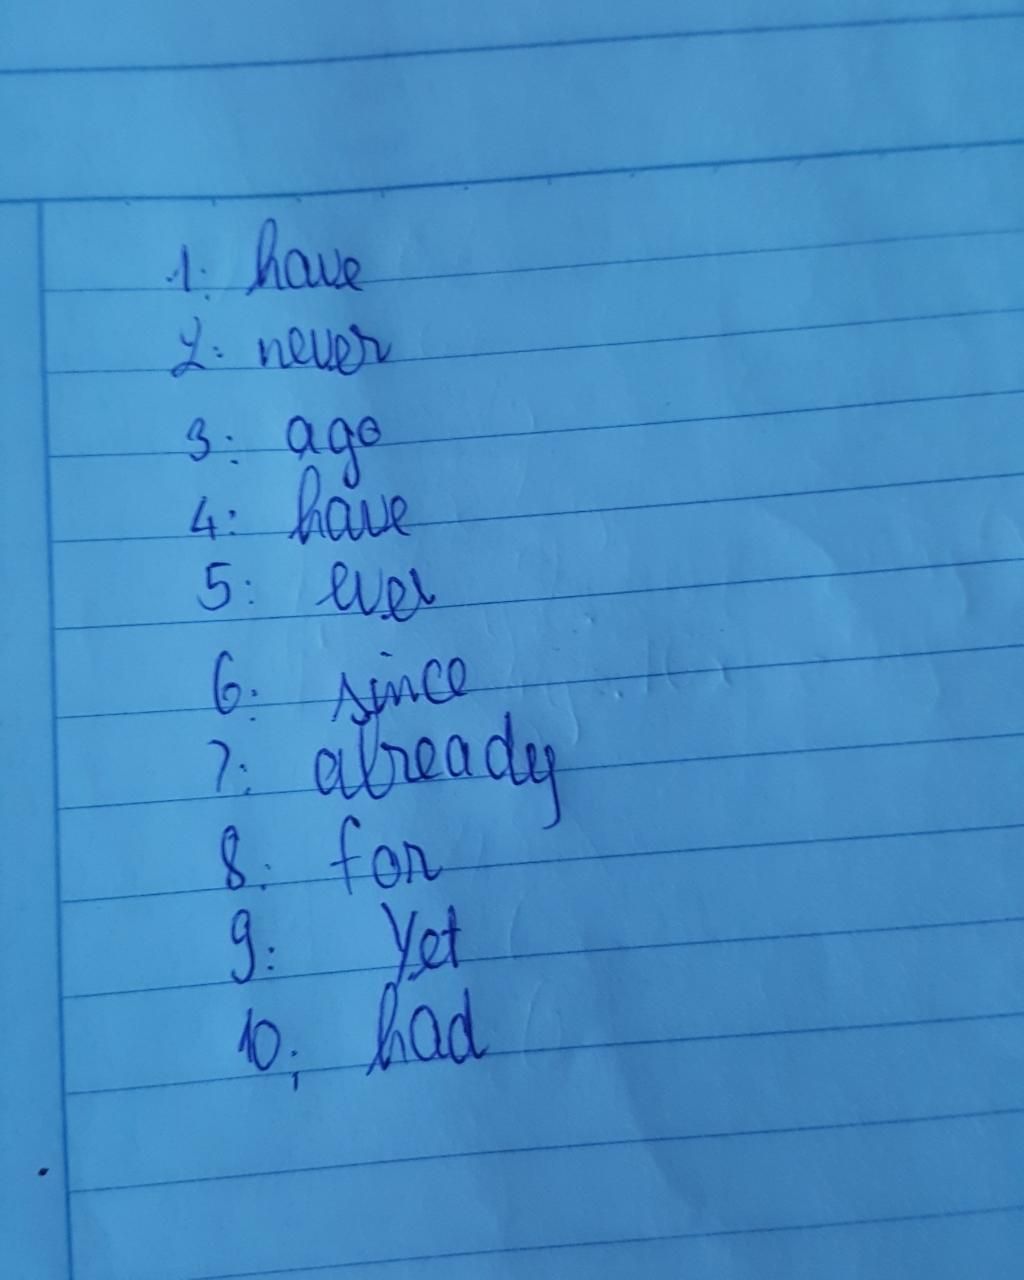 1: have
2: never
3: ago
4: have
5: ever
6: since
7: already
8: for
9: Yet
10; had